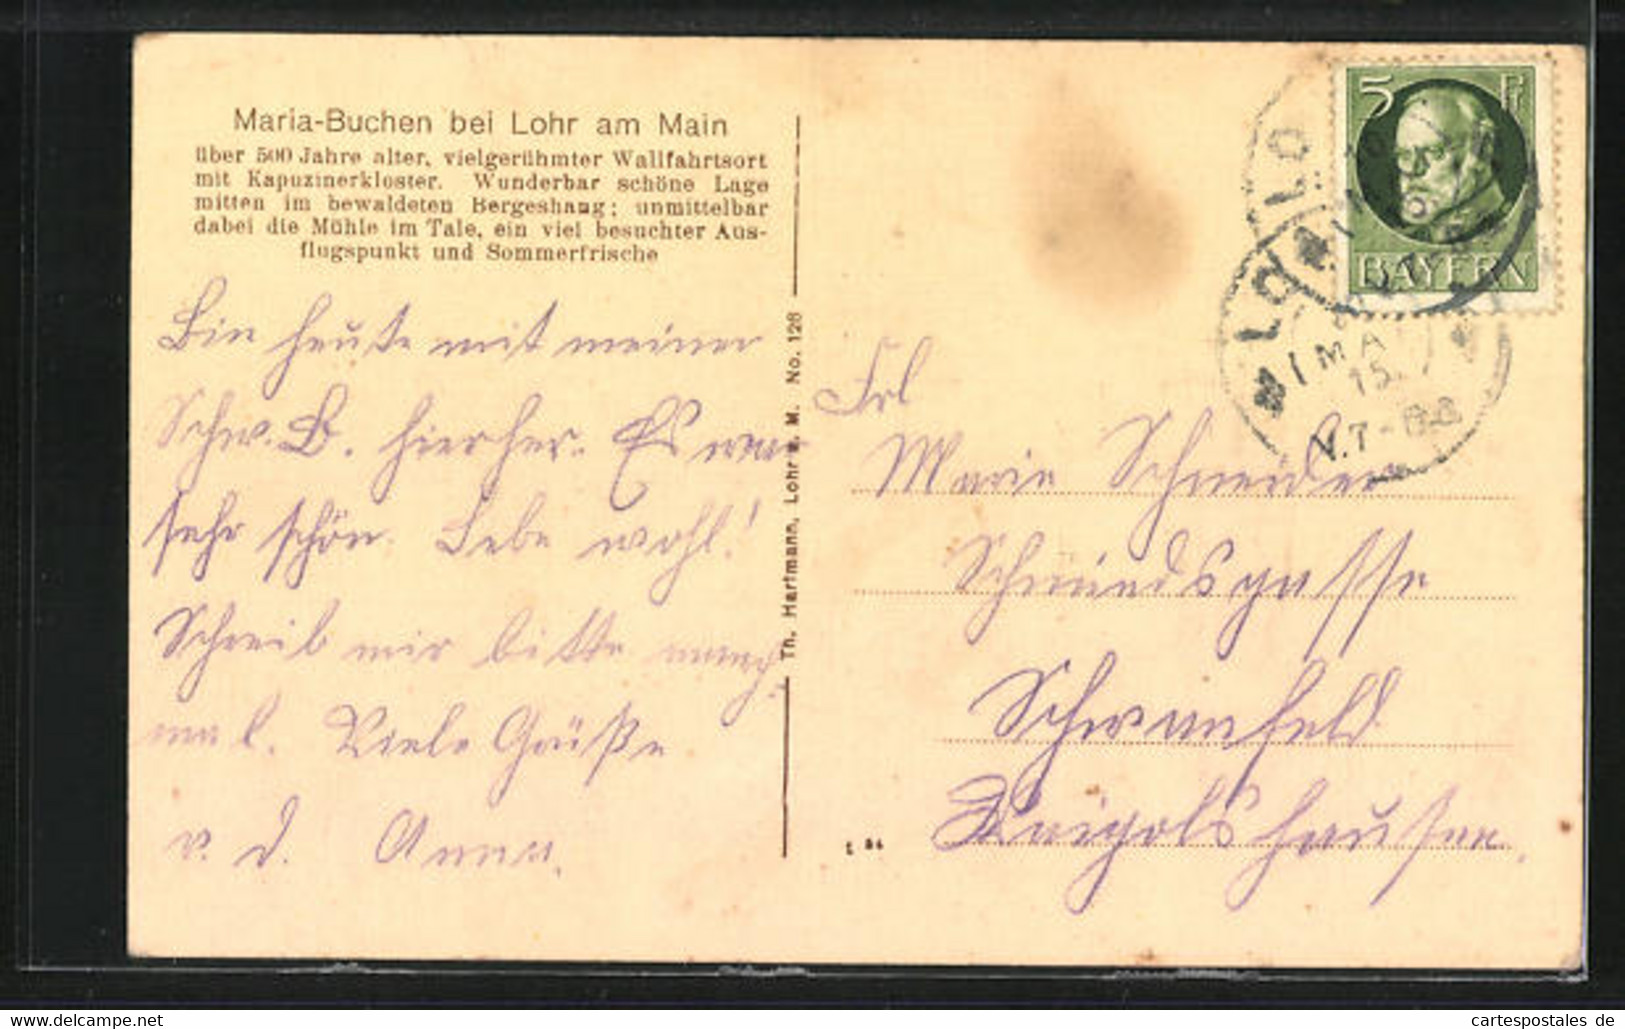 Maria-Buchen bei Lohr am Main
über 500 Jahre alter, vielgerühmter Wallfahrtsort
mit Kapuzinerkloster. Wunderbar schöne Lage
mitten im bewaldeten Bergeshang; unmittelbar
dabei die Mühle im Tale, ein viel besuchter Aus-
flugspunkt und Sommerfrische
Bin heute mit meiner
Schw. B. hierher. Es war
sehr schön. Lebe wohl!
Schreib mir bitte manch-
mal. Viele Grüße
v. d. Anna.
Th. Hartmann, Lohr a. M. No. 128
5
BAYERN
LO
LO
15.
V.7-8
Frl
Marie Schneider
Schmiedsgasse
Schwanfeld
Kaigolshausen.